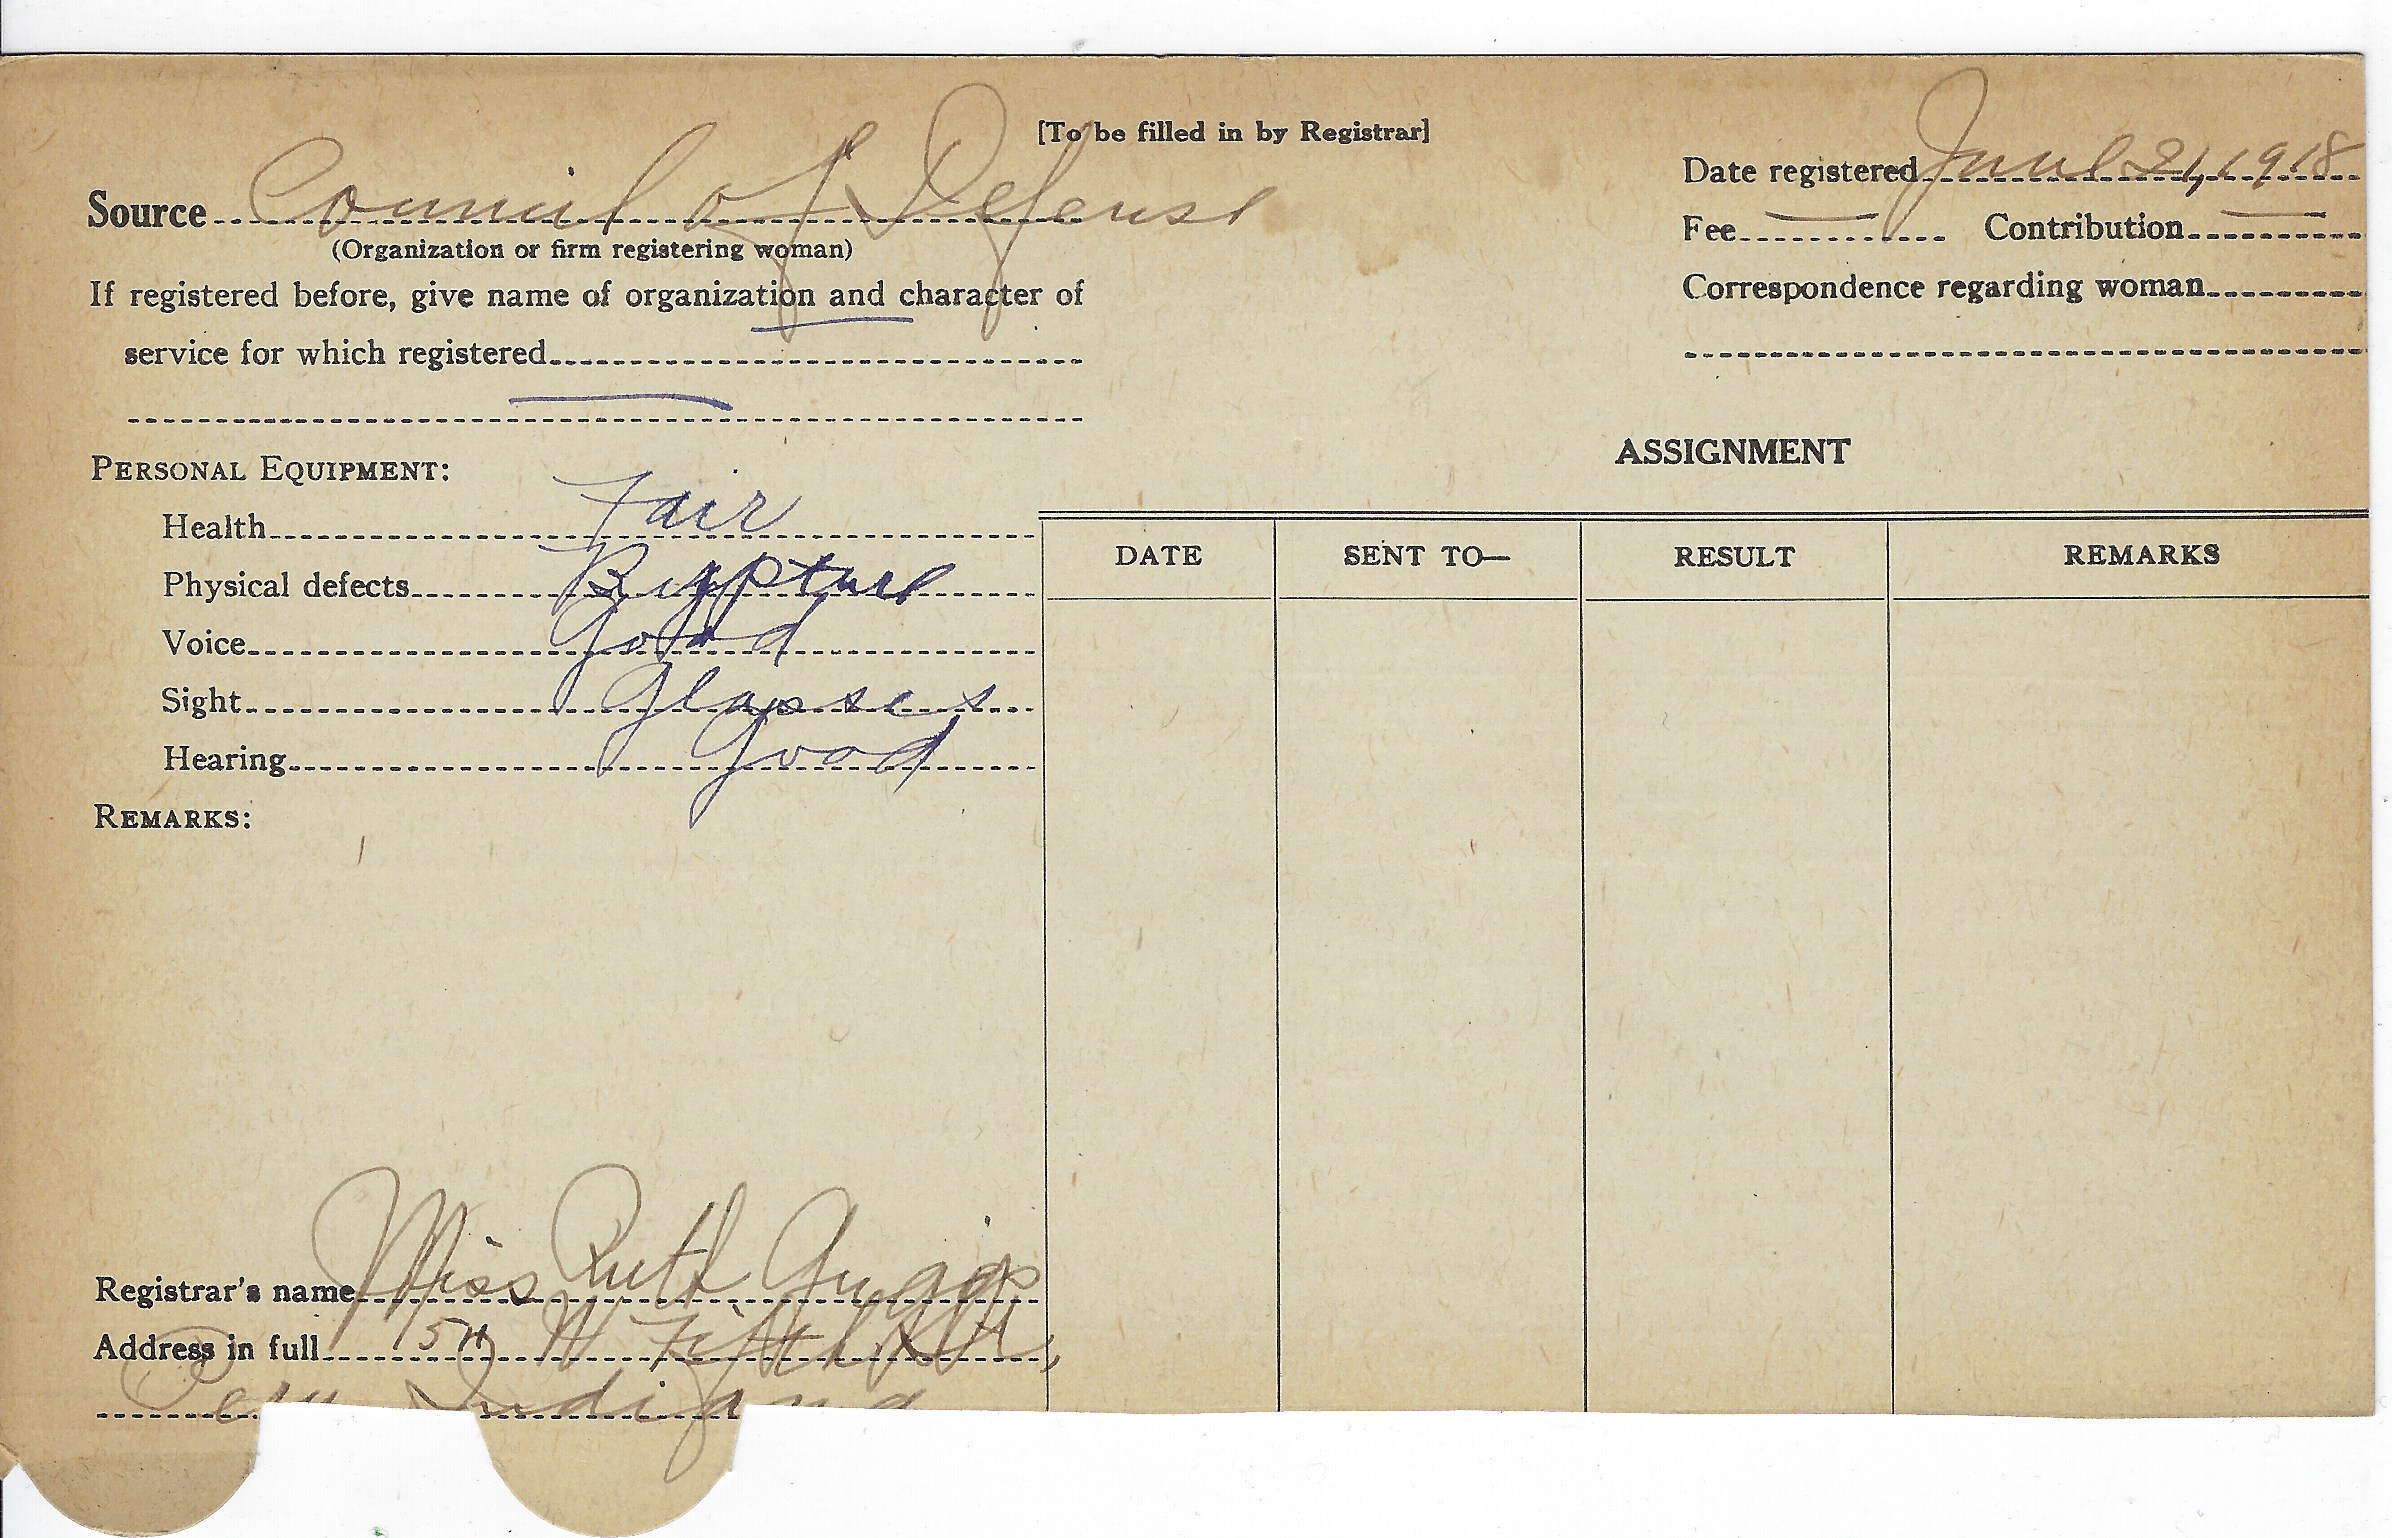 [To be filled in by Registrar]
Source Council of Defense
(Organization or firm registering woman)
If registered before, give name of organization and character of
service for which registered
Date registered June 21, 1918
Fee — Contribution —
Correspondence regarding woman
PERSONAL EQUIPMENT:
Health Fair
Physical defects Rupture
Voice Good
Sight Glasses
Hearing Good
REMARKS:
ASSIGNMENT
DATE SENT TO— RESULT REMARKS
Registrar's name Miss Ruth
Address in full W Fifth St,
Peru Indiana